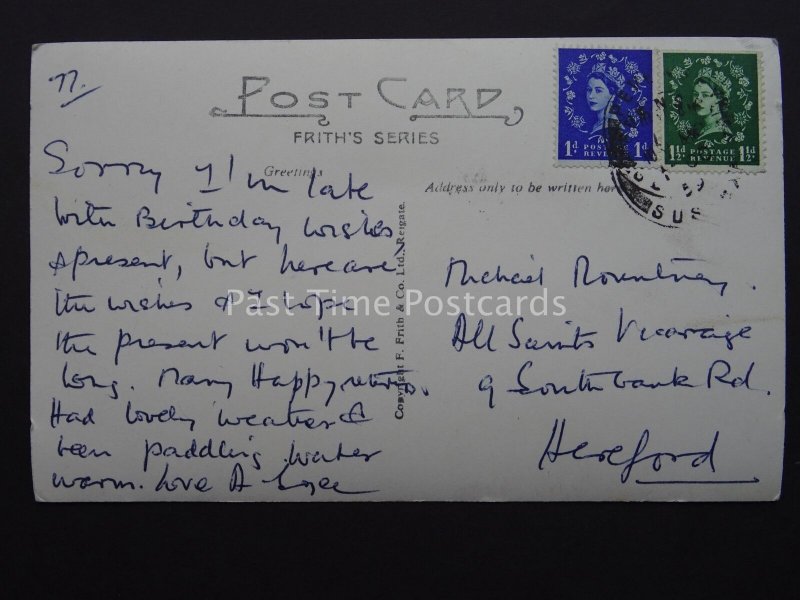 77.
POST CARD
FRITH'S SERIES
Greetings
Address only to be written her
Sorry I'm late
with Birthday wishes
& present, but here are
the wishes & I hope
the present won't be
long. Many Happy returns.
Had lovely weather &
been paddling water
warm. Love A
Copyright F. Frith & Co. Ltd., Reigate.
Michael Mountney.
All Saints Vicarage
9 Southbank Rd.
Hereford
1D POSTAGE REVENUE 1D
1½D POSTAGE REVENUE 1½D
SUS
Past Time Postcards